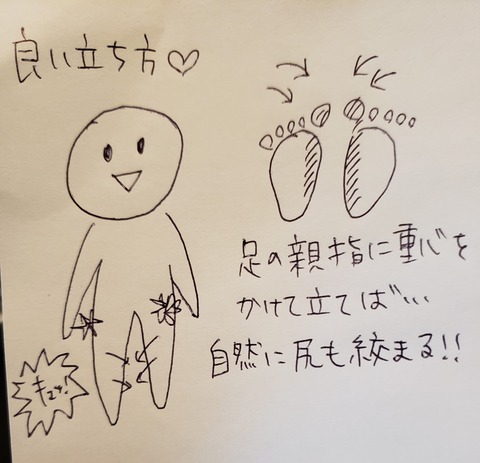 良い立ち方♡
足の親指に重心を
かけて立てば…
自然に尻も絞まる!!
キュッ!